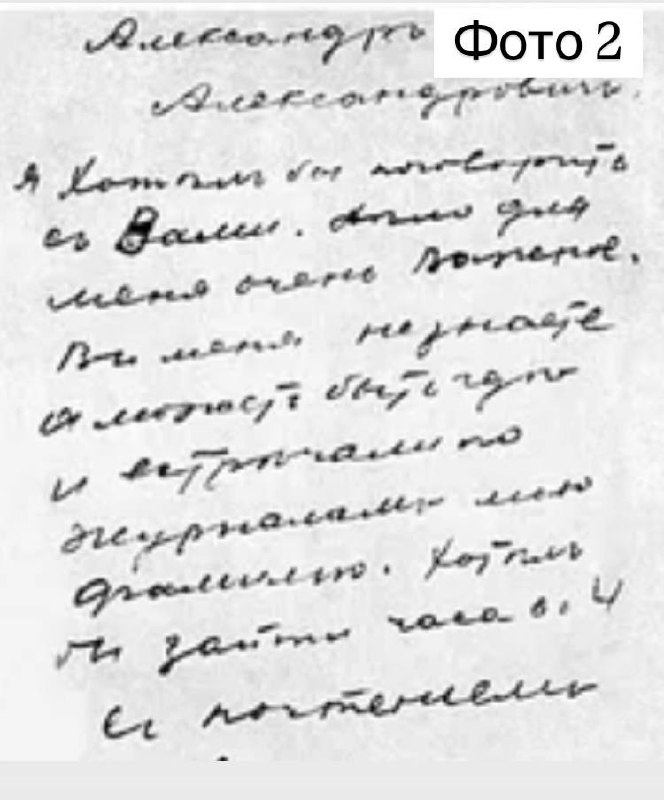 Александръ
Фото 2
Александровичъ.
Я Хотѣлъ бы поговорить
съ Вами. дѣло для
меня очень важное.
Вы меня не знаете
а можетъ быть гдѣ
и встрѣчали по
журналамъ мою
фамилію. Хотѣлъ
бы зайти часа въ 4
Съ почтеніемъ